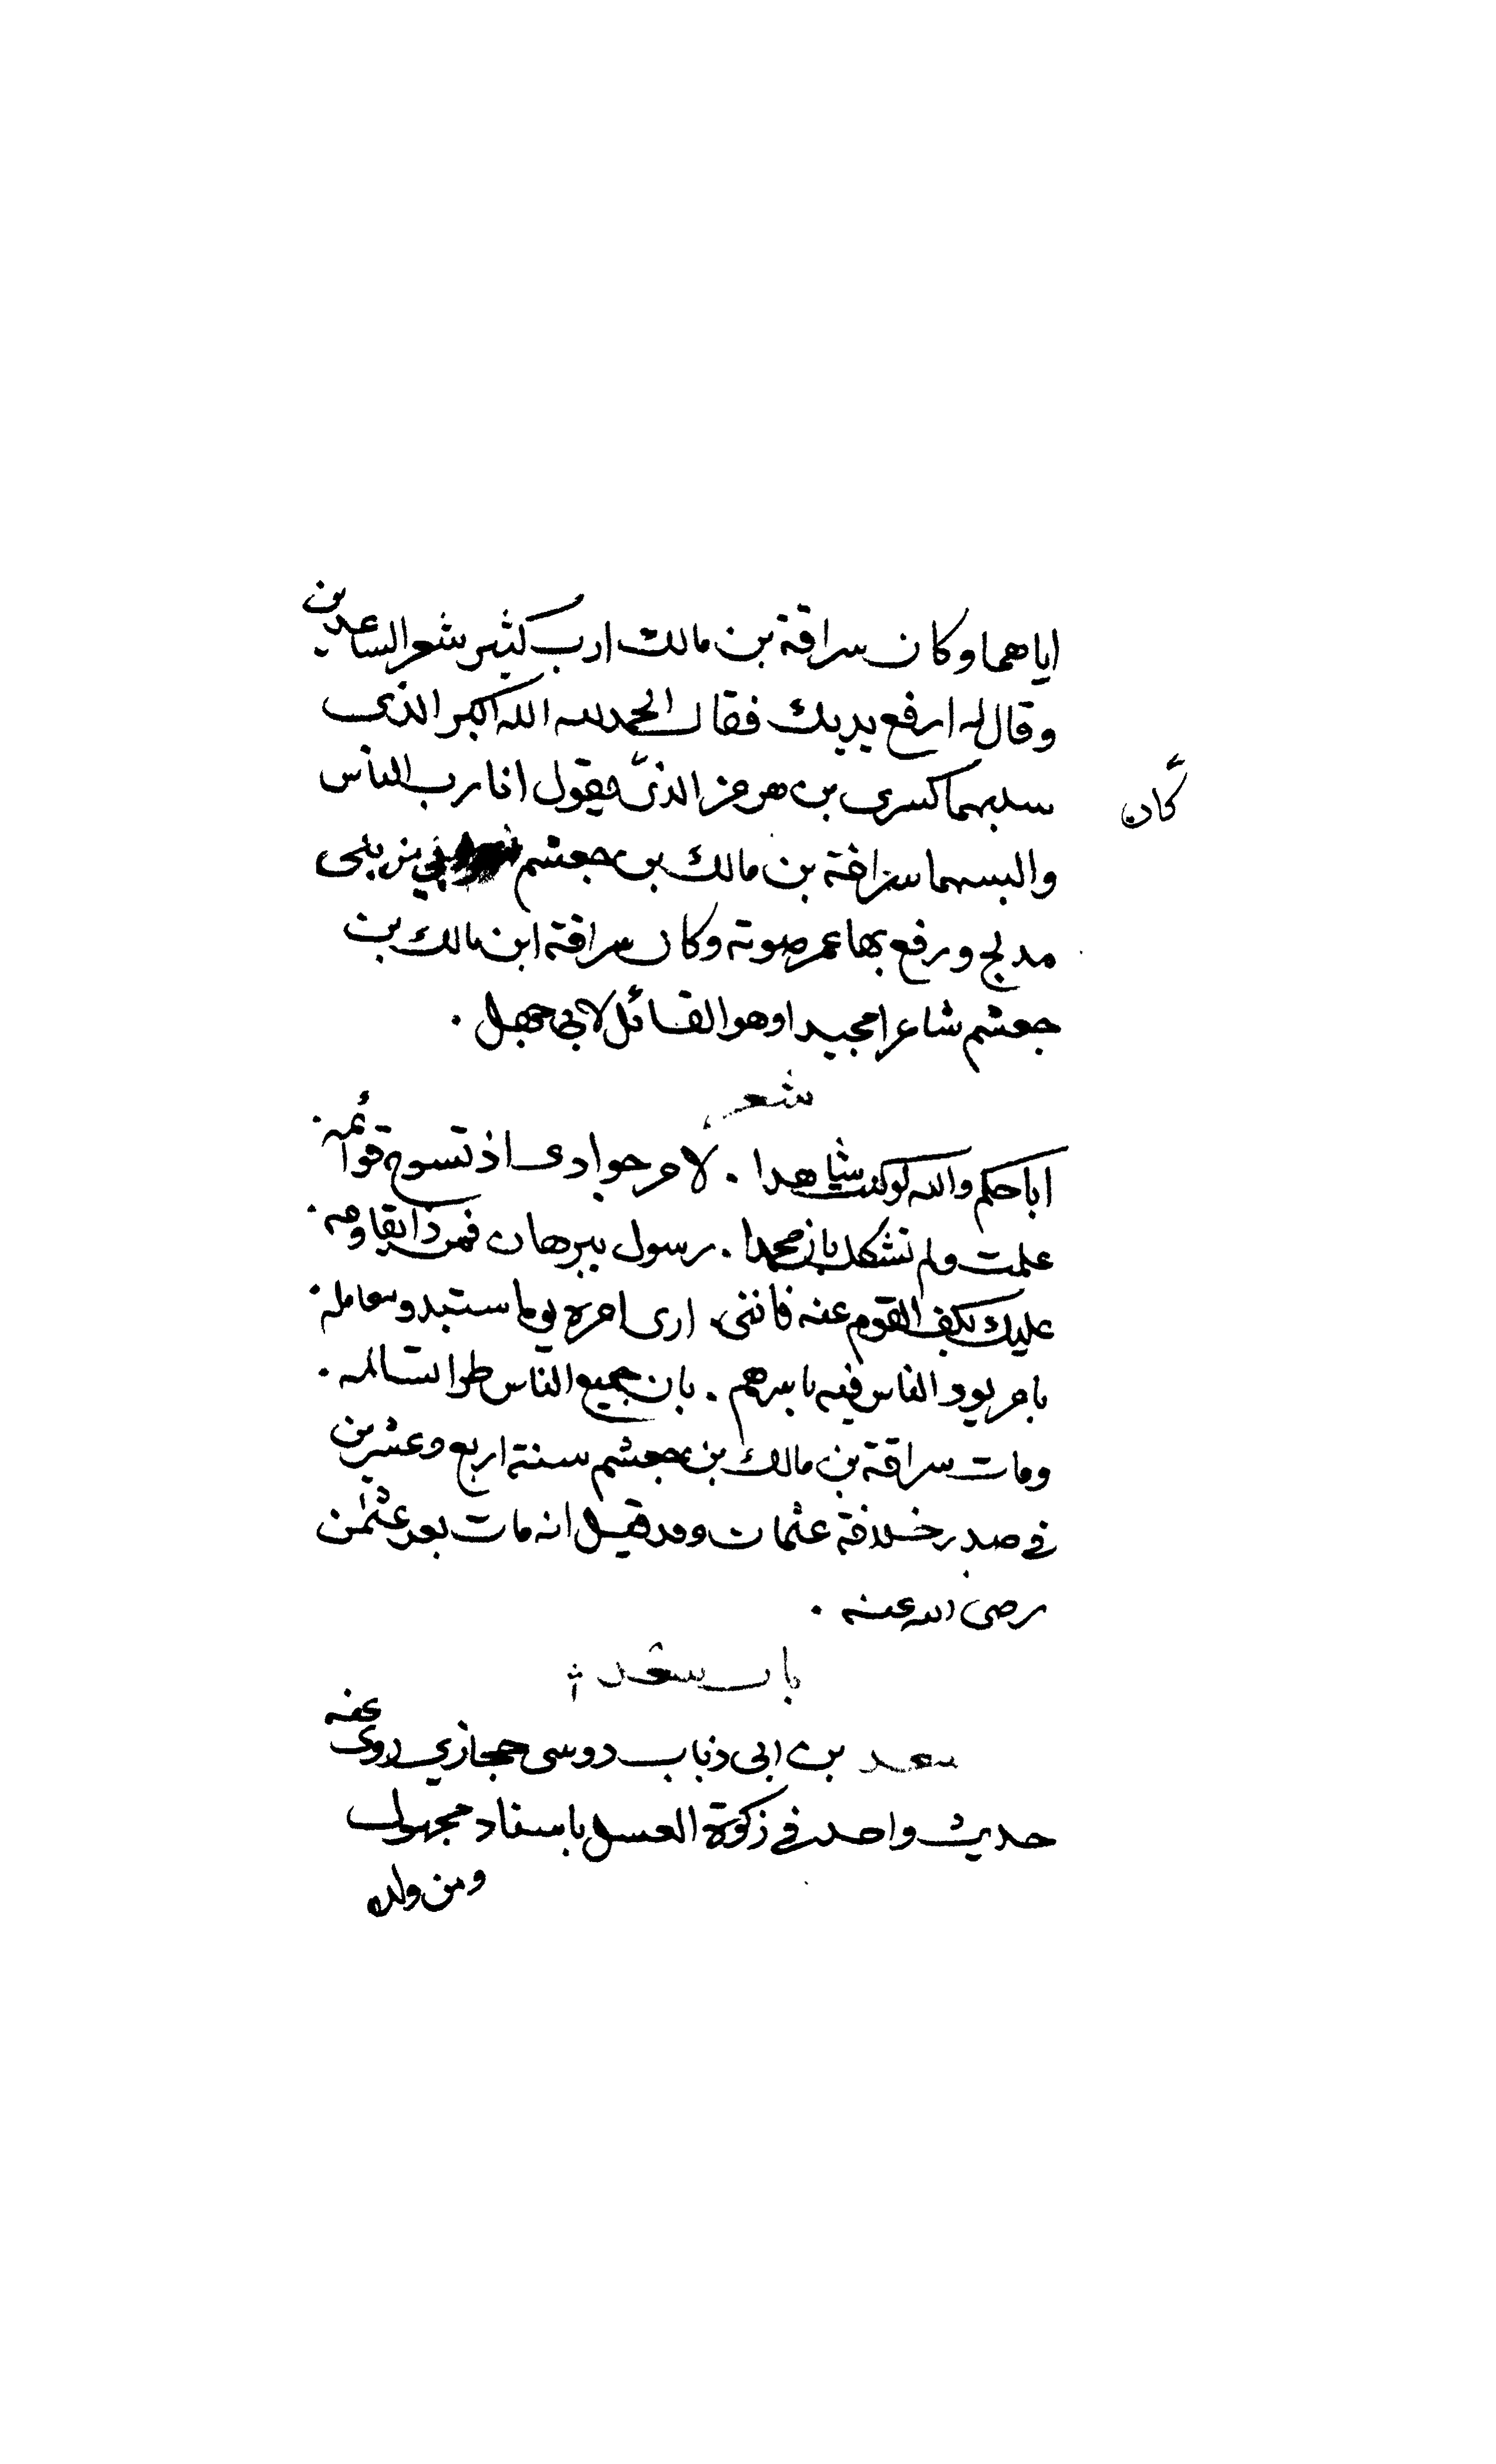 اياهما وكان سراقة بن مالك ازب كثير شعر الساعدين
وقال له ارفع يديك فقال الحمد لله الله اكبر الذى
سلبهما كسرى بن هرمز الذى يقول انا رب الناس
كان
والبسهما سراقة بن مالك بن جعشم من بنى
مدلج ورفع بها عمر صوته وكان سراقة ابن مالك بن
جعشم شاعرا مجيدا وهو القائل لابى جهل .
شعر
ابا حكم والله لو كنت شاهدا . لامر جوادى اذ تسوح قوائمه .
علمت ولم تشكك بان محمدا . رسول ببرهان فمن ذا يقاومه .
عليك بكف القوم عنه فاننى . ارى امره يوما ستبدو معالمه .
بامر يود الناس فيه باسرهم . بان جميع الناس طرا تسالمه .
ومات سراقة بن مالك بن جعشم سنة اربع وعشرين
فى صدر خلافة عثمان وقد قيل انه مات بعد عثمن
رضى الله عنه .
باب سعد
سعد بن ابى ذباب دوسى حجازي روى عنه
حديث واحد فى زكوة العسل باسناد مجهول
ومن ولده